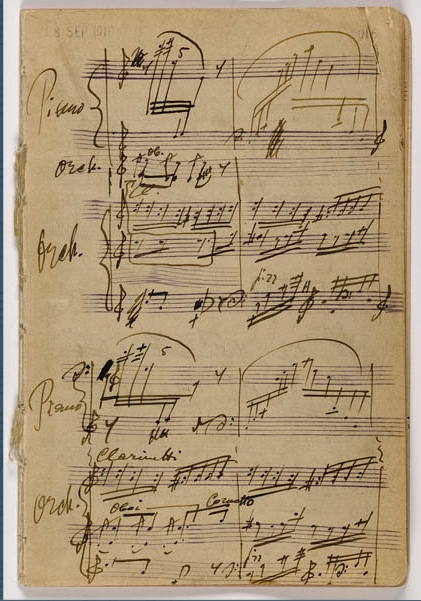 28 SEP 1910
Piano
5
Orch.
ob.
Orch.
Piano
5
Clarinetti
Orch.
Oboi
Cornetto